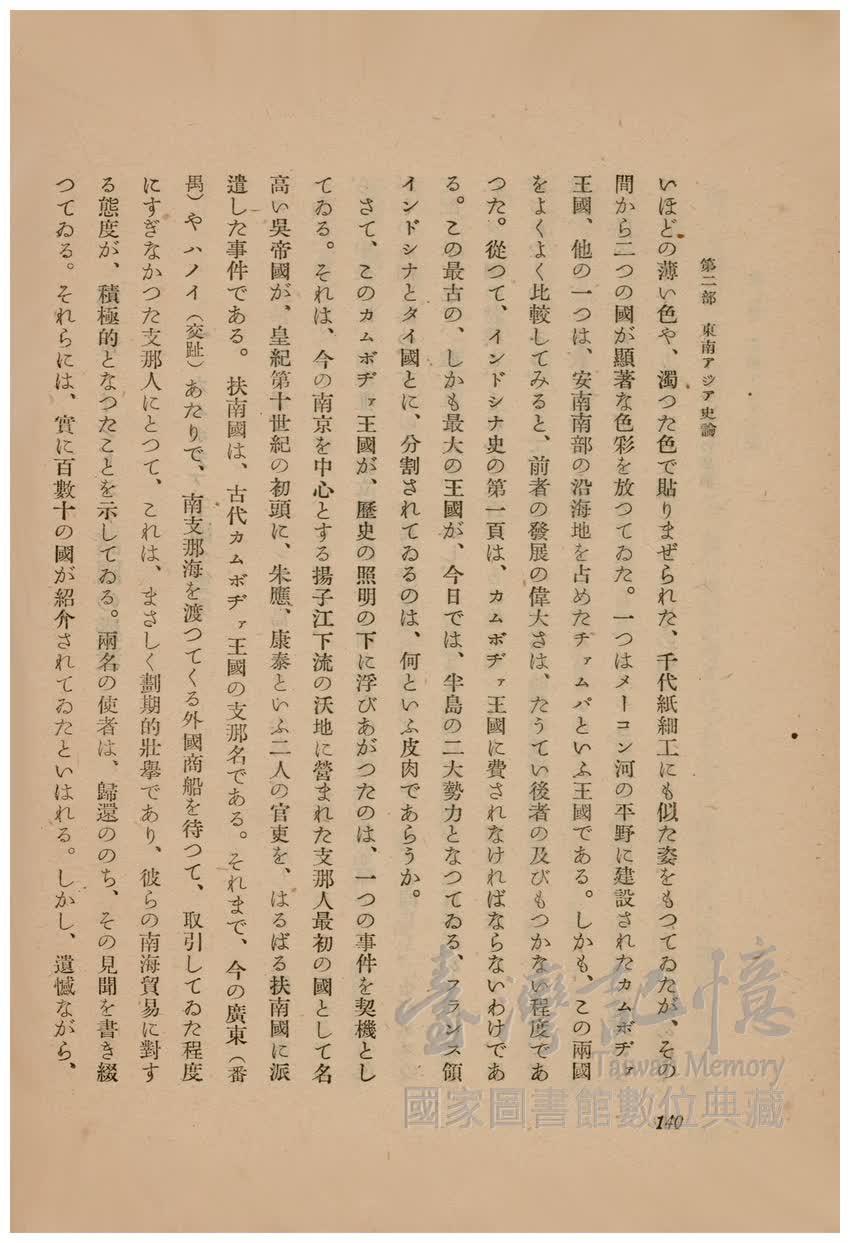 第二部　東南アジア史論
いほどの薄い色や、濁つた色で貼りまぜられた、千代紙細工にも似た姿をもつてゐたが、その
間から二つの國が顯著な色彩を放つてゐた。一つはメーコン河の平野に建設されたカムボヂァ
王國、他の一つは、安南南部の沿海地を占めたチァムパといふ王國である。しかも、この兩國
をよくよく比較してみると、前者の發展の偉大さは、たうてい後者の及びもつかない程度であ
つた。從つて、インドシナ史の第一頁は、カムボヂァ王國に費されなければならないわけであ
る。この最古の、しかも最大の王國が、今日では、半島の二大勢力となつてゐる、フランス領
インドシナとタイ國とに、分割されてゐるのは、何といふ皮肉であらうか。
さて、このカムボヂァ王國が、歷史の照明の下に浮びあがつたのは、一つの事件を契機とし
てゐる。それは、今の南京を中心とする揚子江下流の沃地に營まれた支那人最初の國として名
高い吳帝國が、皇紀第十世紀の初頭に、朱應、康泰といふ二人の官吏を、はるばる扶南國に派
遣した事件である。扶南國は、古代カムボヂァ王國の支那名である。それまで、今の廣東（番
禺）やハノイ（交趾）あたりで、南支那海を渡つてくる外國商船を待つて、取引してゐた程度
にすぎなかつた支那人にとつて、これは、まさしく劃期的壯擧であり、彼らの南海貿易に對す
る態度が、積極的となつたことを示してゐる。兩名の使者は、歸還ののち、その見聞を書き綴
つてゐる。それらには、實に百數十の國が紹介されてゐたといはれる。しかし、遺憾ながら、
140
臺灣記憶
Taiwan Memory
國家圖書館數位典藏